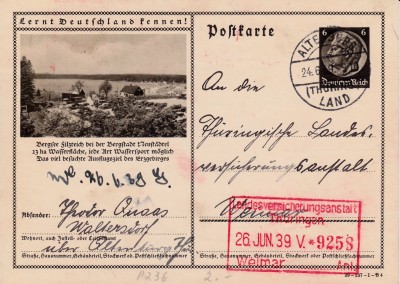 Lernt Deutschland kennen!
Postkarte
6 6
Deutsches Reich
ALTENBURG
24.6.
(THÜRING)
LAND
Bergsee Filzteich bei der Bergstadt Neustädtel
23 ha Wasserfläche, jede Art Wassersport möglich
Das viel besuchte Ausflugsziel des Erzgebirges
26.6.39
An die
Thüringische Landes-
versicherungsanstalt
Weimar
Absender: Theodor Quaas
Waltersdorf
Wohnort, auch Zustell- oder Leitpostamt
über Altenburg Thür
Straße, Hausnummer, Gebäudeteil, Stockwerk od. Postschließfachnummer
Landesversicherungsanstalt
Thüringen
26. JUN. 39 V. *9258
Weimar Anl.
Straße, Hausnummer, Gebäudeteil, Stockwerk oder Postschließfachnummer
P236 2.-